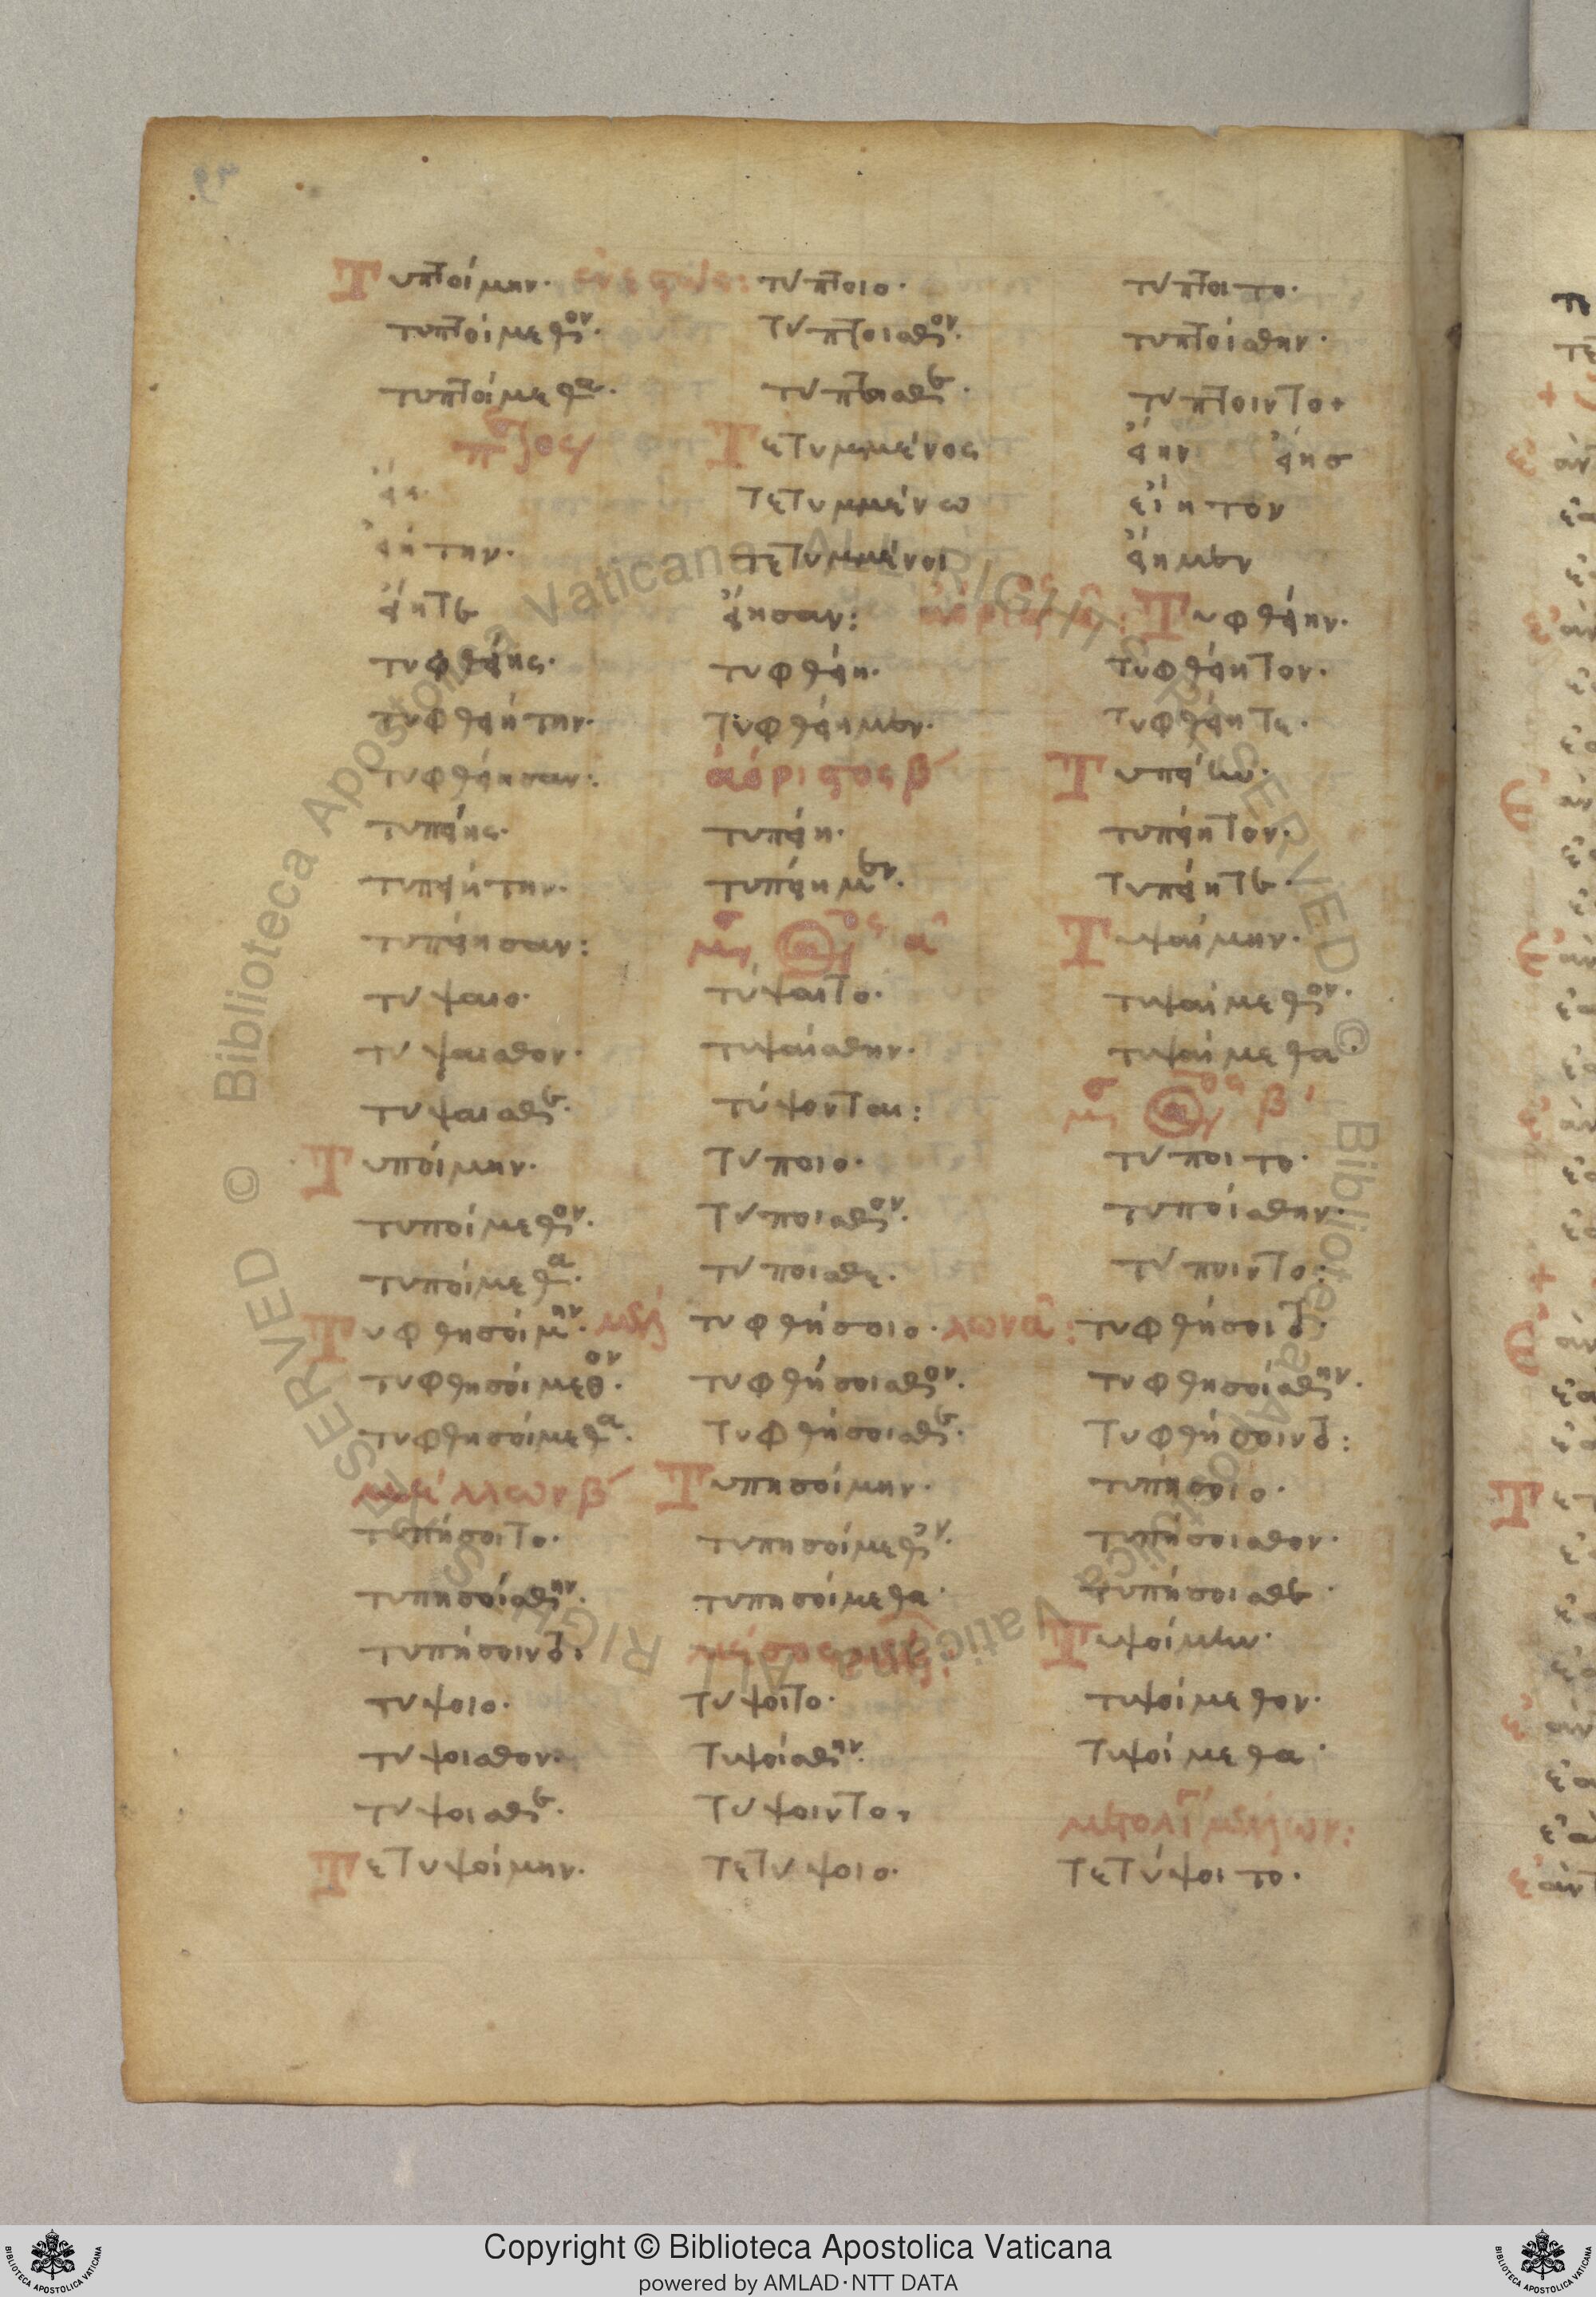 Τυπτοίμην· ἐνεστώς: τύπτοιο· τύπτοιτο·
τυπτοίμεθον· τύπτοισθον· τυπτοίσθην·
τυπτοίμεθα· τύπτοισθε· τύπτοιντο+
Τετυμμένος εἴην εἴησ
εἴη· τετυμμένω εἴητον
εἰήτην· τετυμμένοι εἴημεν
εἴητε εἴησαν: ἀόριστος α: Τυφθείην·
τυφθείης· τυφθείη· τυφθείητον·
τυφθειήτην· τυφθείημεν· τυφθείητε·
τυφθείησαν: ἀόριστος β Τυπείην·
τυπείης· τυπείη· τυπείητον·
τυπειήτην· τυπείημεν· τυπείητε·
τυπείησαν: Τυψαίμην·
τύψαιο· τύψαιτο· τυψαίμεθον·
τύψαισθον· τυψαίσθην· τυψαίμεθα·
τύψαισθε· τύψονται: β
Τυποίμην· τύποιο· τύποιτο·
τυποίμεθον· τύποισθον· τυποίσθην·
τυποίμεθα· τύποισθε· τύποιντο:
Τυφθησοίμην· μέλ τυφθήσοιο· λων α: τυφθήσοιτο·
τυφθησοίμεθον· τυφθήσοισθον· τυφθησοίσθην·
τυφθησοίμεθα· τυφθήσοισθε· τυφθήσοιντο:
μέλλων β Τυπησοίμην· τυπήσοιο·
τυπήσοιτο· τυπησοίμεθον· τυπήσοισθον·
τυπησοίσθην· τυπησοίμεθα· τυπήσοισθε·
τυπήσοιντο: Τυψοίμην·
τύψοιο· τύψοιτο· τυψοίμεθον·
τύψοισθον· τυψοίσθην· τυψοίμεθα·
τύψοισθε· τύψοιντο,
Τετυψοίμην· τετύψοιο· τετύψοιτο·
Copyright © Biblioteca Apostolica Vaticana
powered by AMLAD·NTT DATA